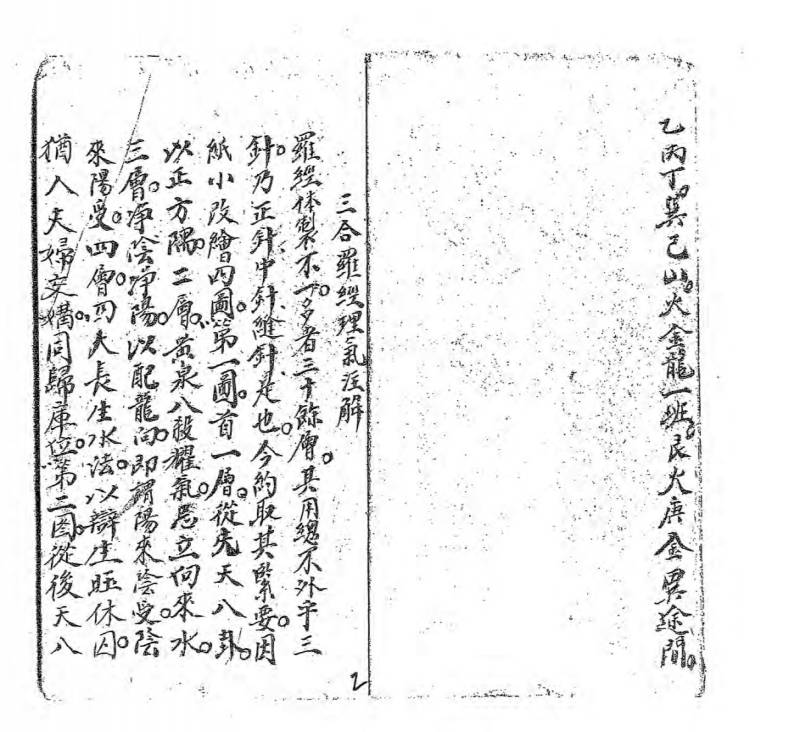 乙丙丁。巽己山。火金龍一班。艮火庚金異途間。
三合羅經理氣注解
羅經体製不一。多者三十餘層。其用總不外乎三
針。乃正針中針縫針是也。今約取其緊要。因
紙小改繪四圖。第一圖。首一層。從先天八卦。
以正方隅。二層。黃泉八殺耀氣。忌立向來水。
三層。淨陰淨陽。以配龍向。即謂陽來陰受。陰
來陽受。四層。四大長生水法。以辯生旺休囚。
猶人夫婦交媾。同歸庫位。第二图。從後天八
2